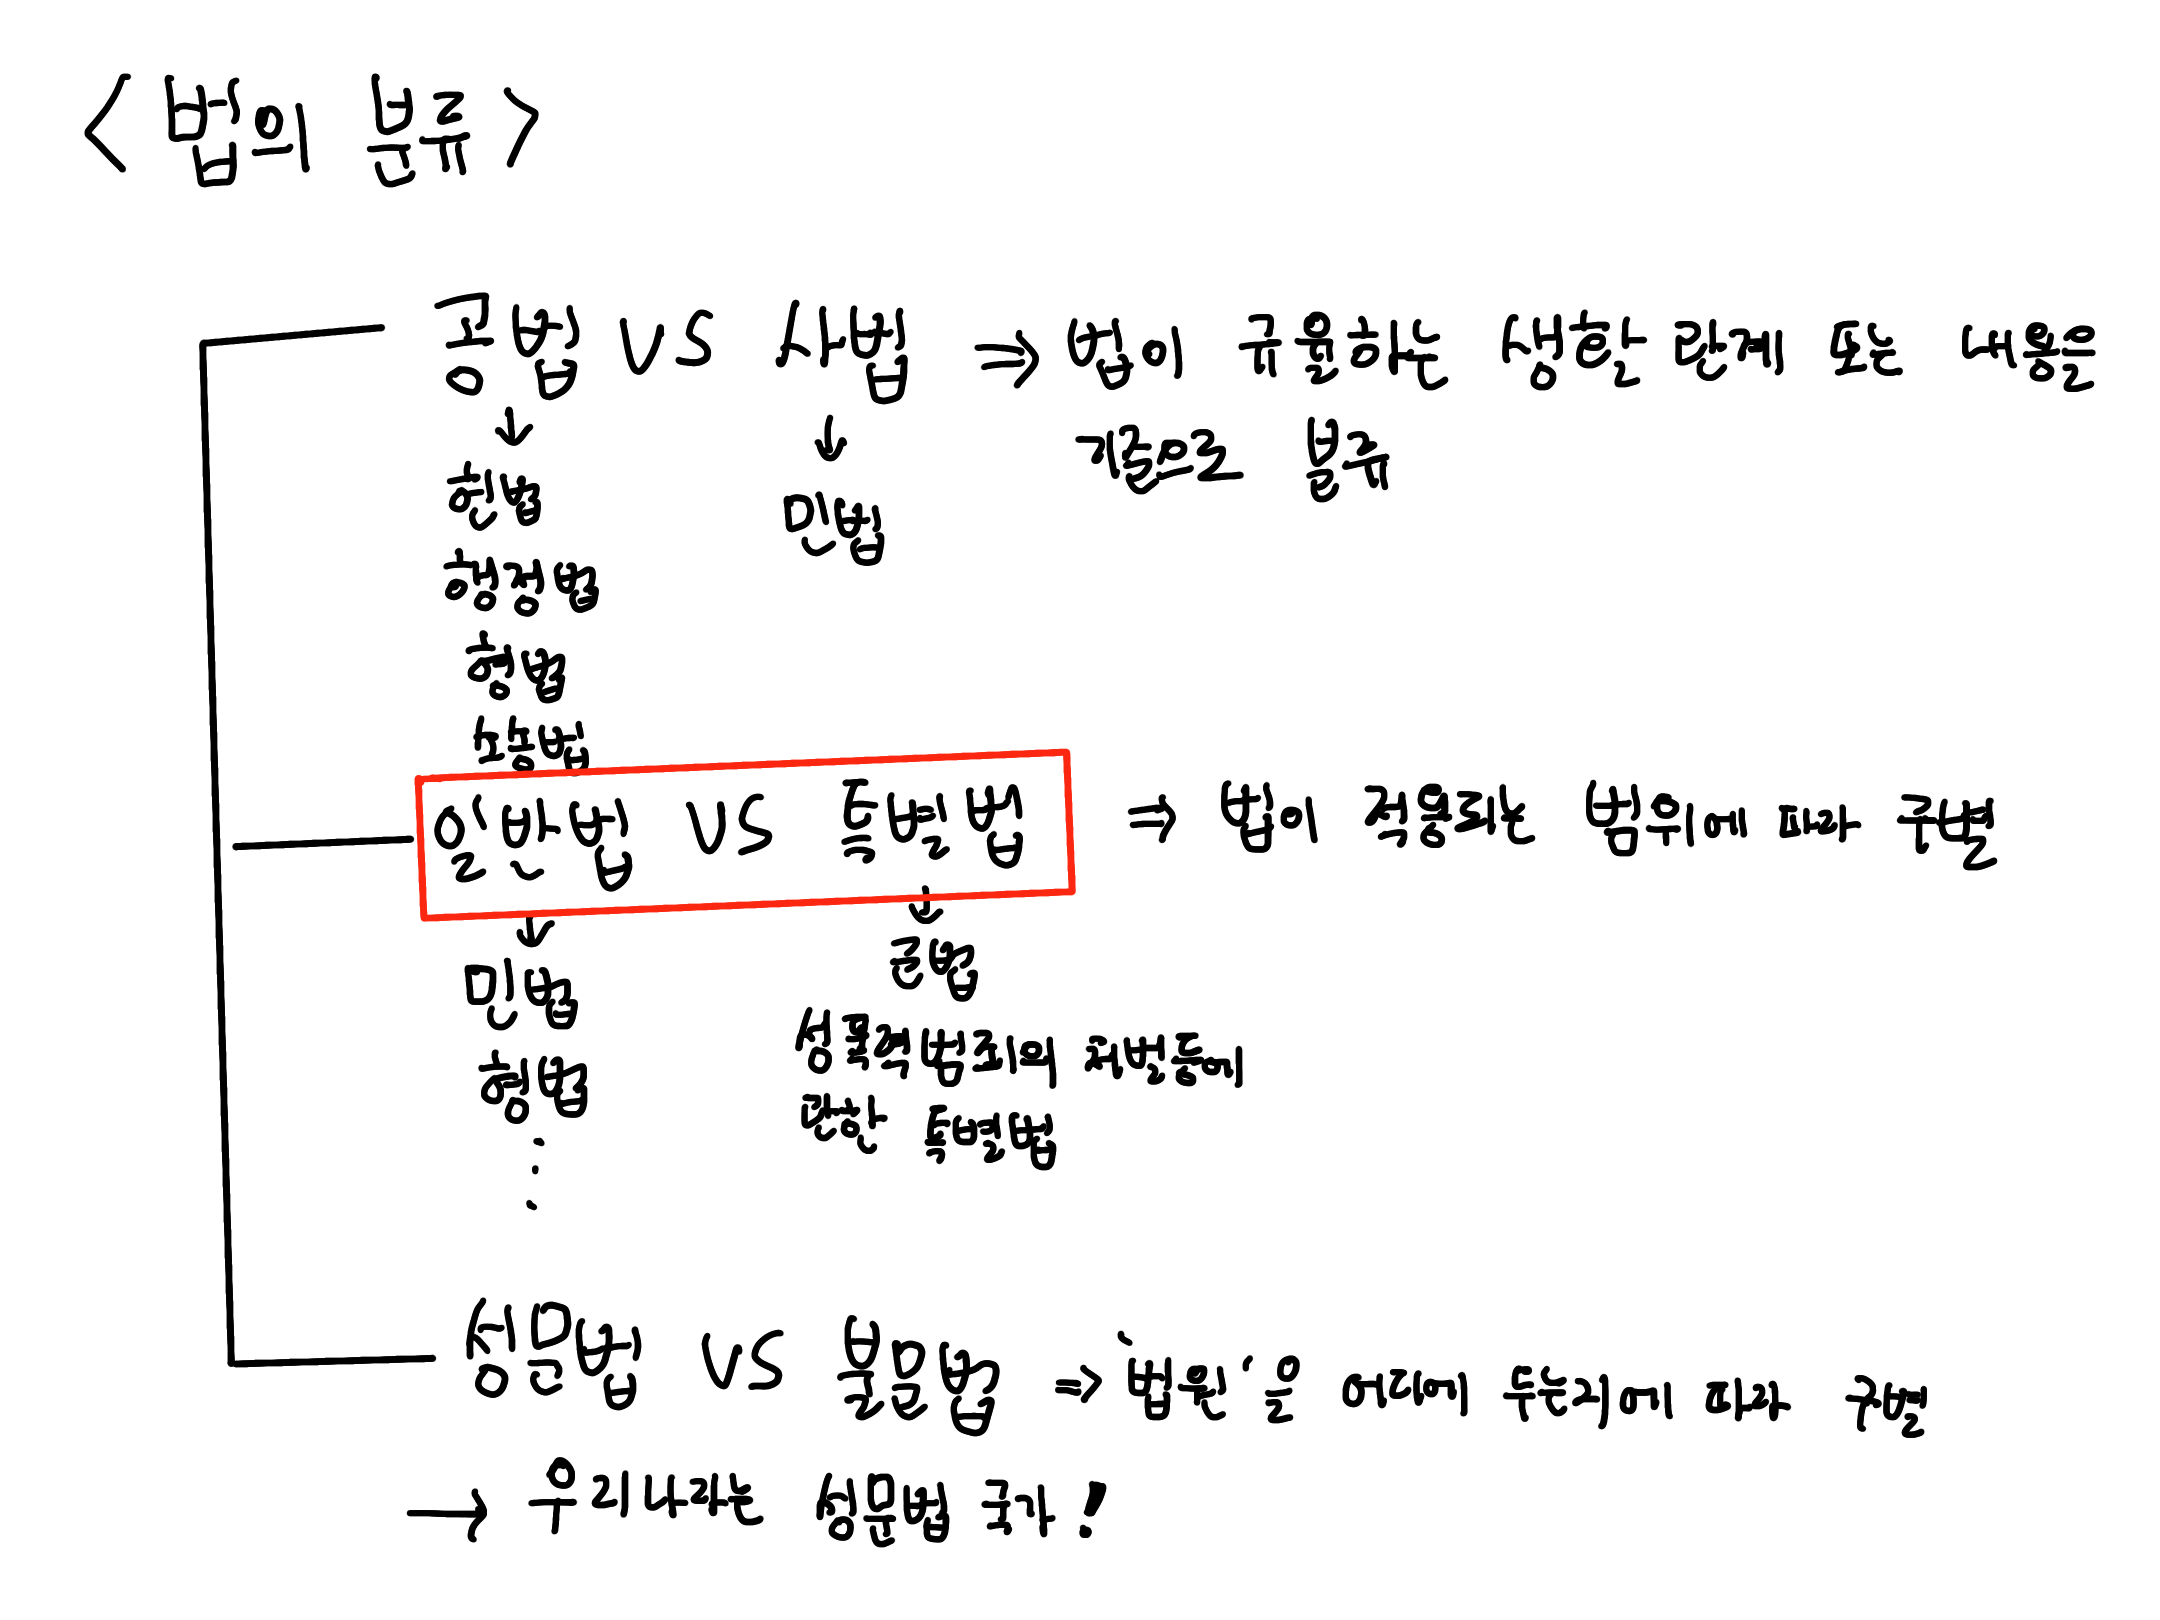 <법의 분류>
공법 VS 사법 ⇒ 법이 규율하는 생활 관계 또는 내용을
기준으로 분류
↓ ↓
헌법 민법
행정법
형법
소송법
일반법 VS 특별법 ⇒ 법이 적용되는 범위에 따라 구별
↓ ↓
민법 군법
형법 성폭력범죄의 처벌등에
관한 특별법
⋮
성문법 VS 불문법 ⇒ '법원'을 어디에 두는지에 따라 구별
→ 우리나라는 성문법 국가!